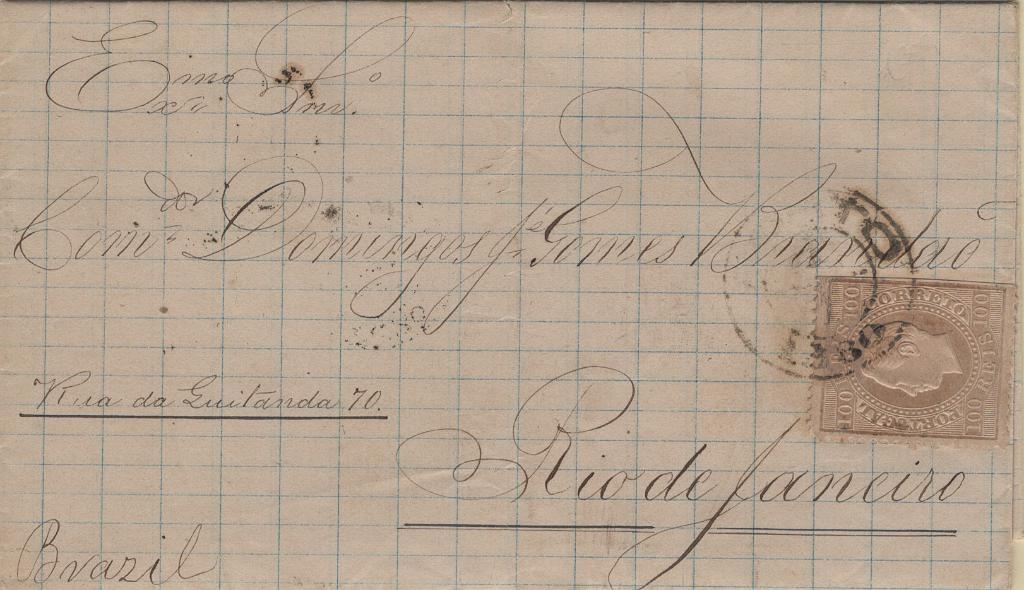 Exmo. Snr.
Comdor Domingos Jé Gomes Brandão
Rua da Quitanda 70.
Rio de Janeiro
Brazil
CORREIO
PORTUGAL
100 REIS 100
100 REIS 100